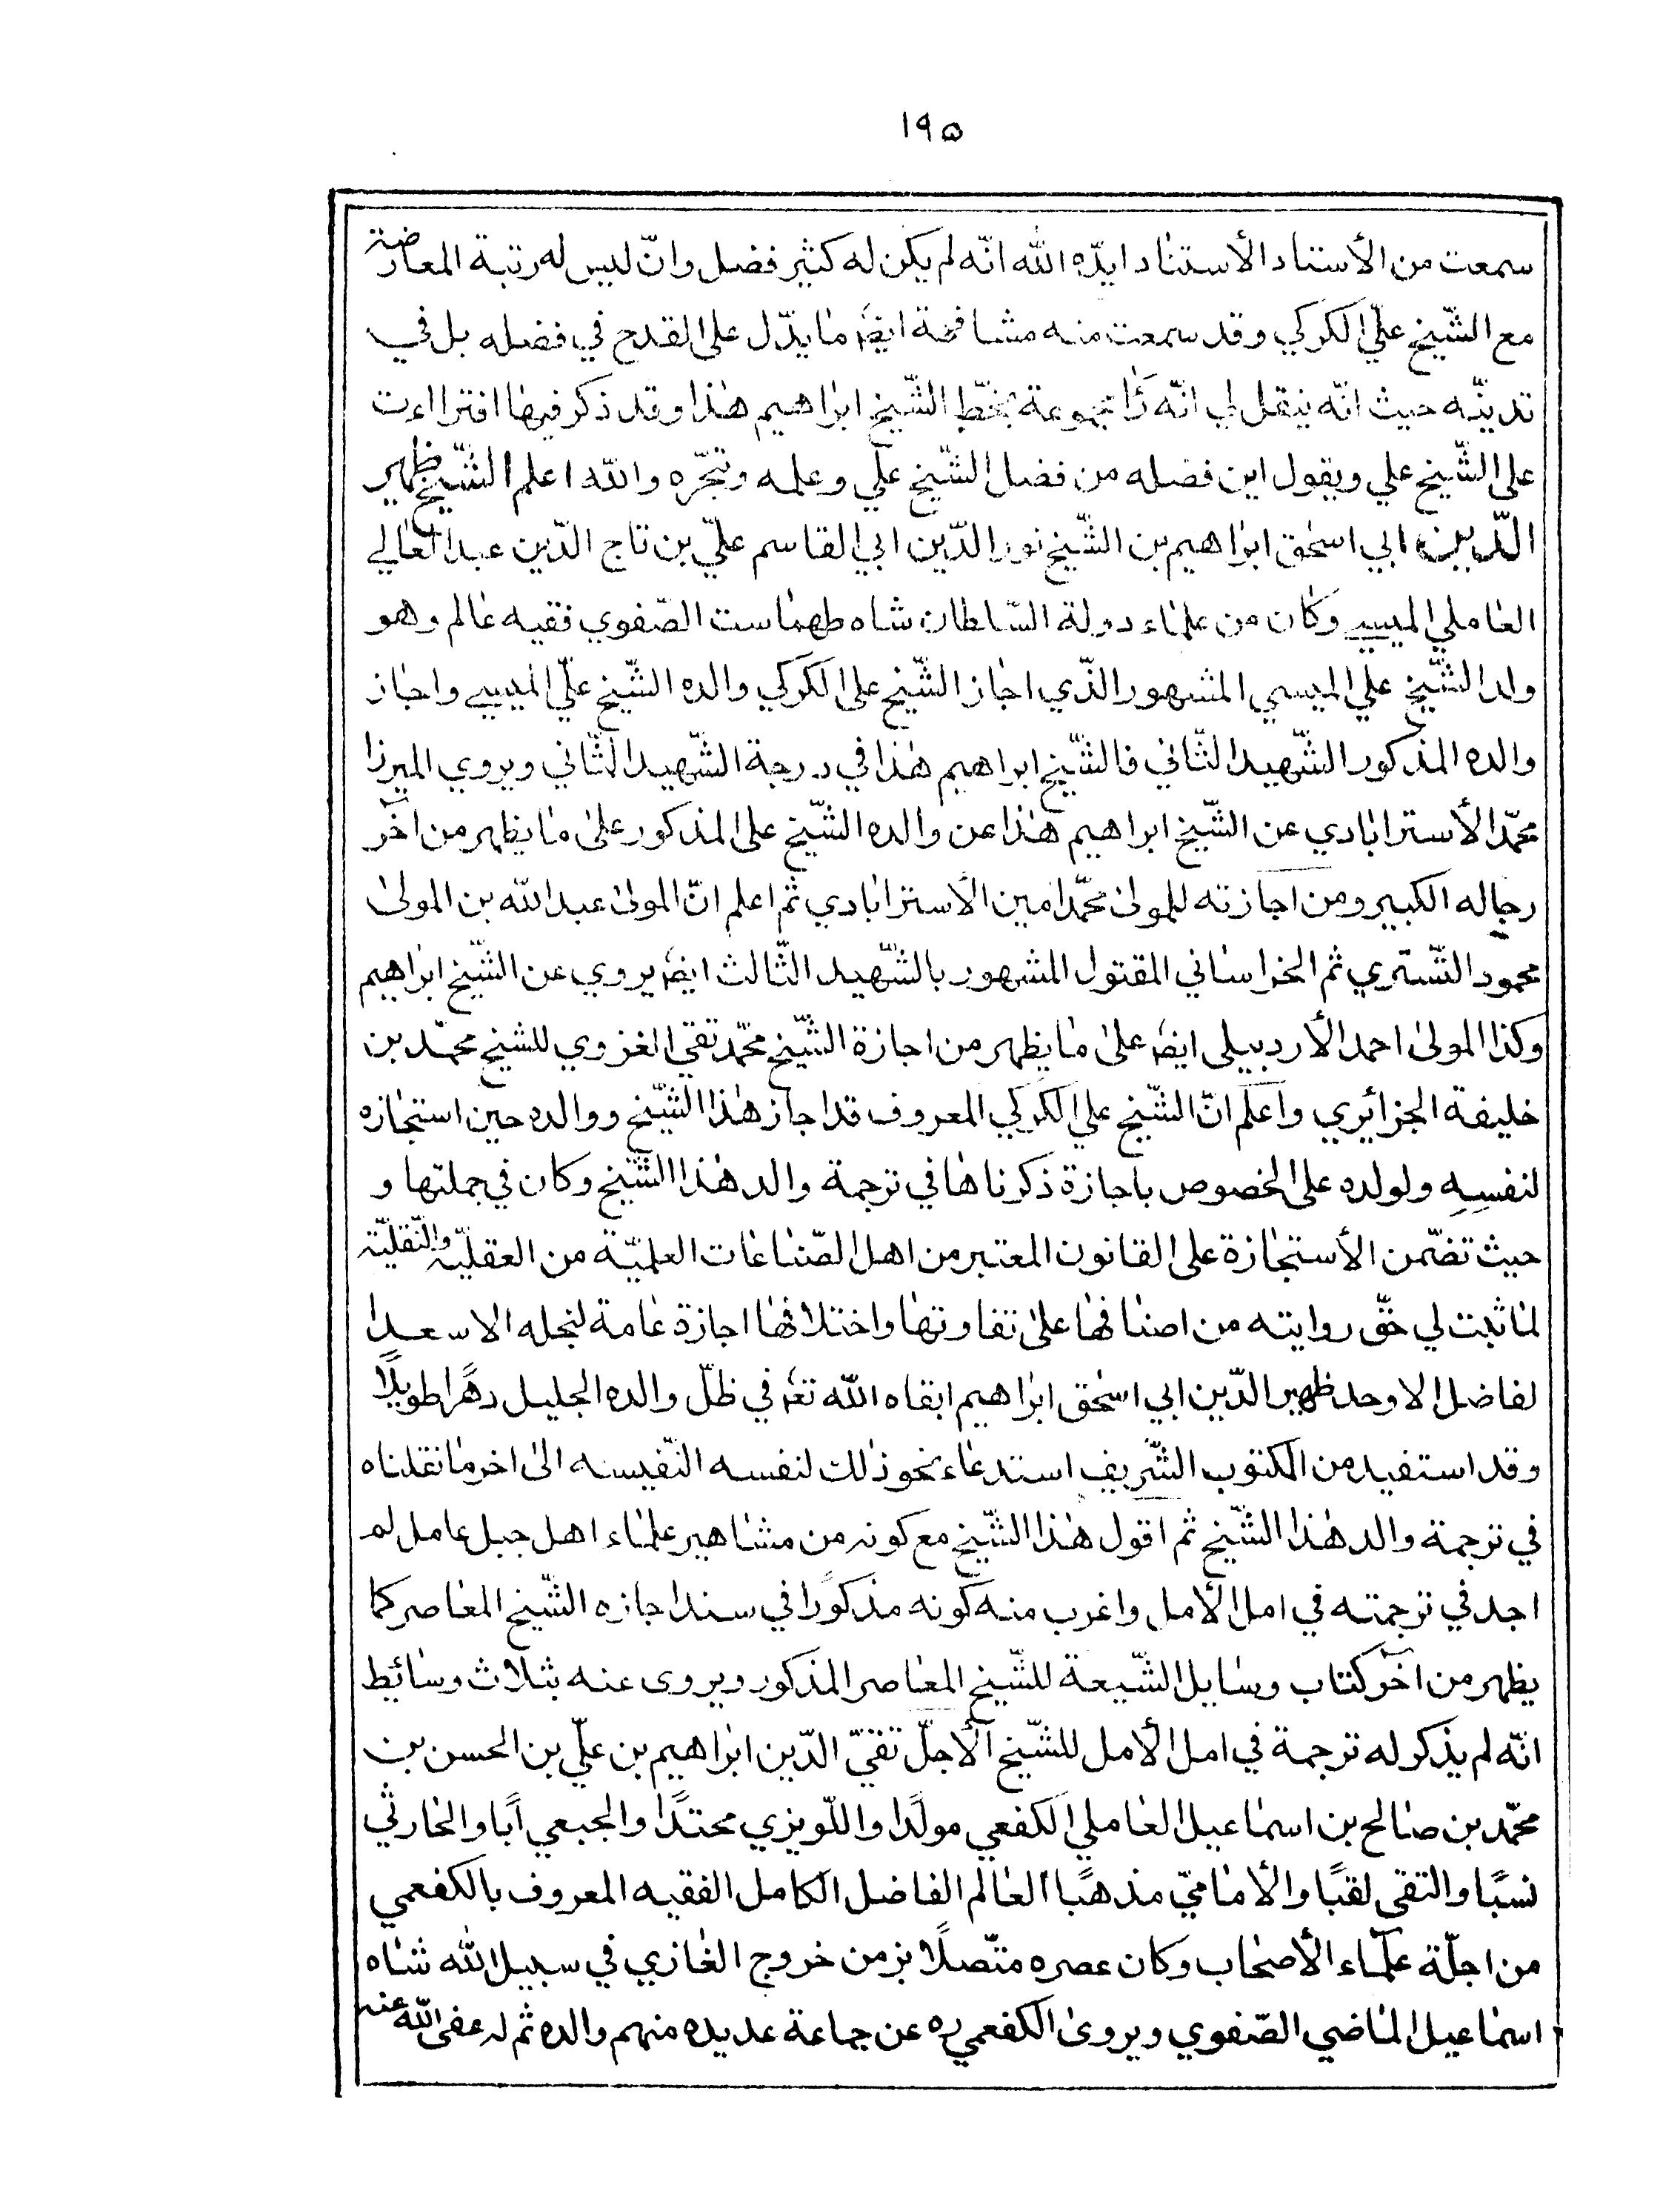 ١٩۵
سمعت من الأستاد الأستناد ايدّه الله انّه لم يكن له كثير فضل وانّ ليس له رتبة المعارضة
مع الشّيخ عليّ الكركي وقد سمعت منه مشافهة ايضً ما يدّل على القدح في فضله بل في
تديّنه حيث انّه ينقل لي انّه رَأ مجموعة بخطّ الشّيخ ابراهيم هذا وقد ذكر فيها افتراءت
على الشّيخ علي ويقول اين فضله من فضل الشّيخ علي وعلمه وتبحّره والله اعلم الشّيخ ظهير
الدّين ابي اسحٰق ابراهيم بن الشّيخ نور الدّين ابي القاسم عليّ بن تاج الدّين عبد العالي
العاملي الميسي وكان من علماء دولة السّلطان شاه طهماست الصّفوي فقيه عالم وهو
ولد الشّيخ علي الميسي المشهور الذّي اجاز الشّيخ على الكركي والده الشّيخ عليّ الميسي واجاز
والده المذكور الشّهيد الثّاني فالشّيخ ابراهيم هذا في درجة الشّهيد الثّاني ويروي الميرزا
محمّد الأستراباددي عن الشّيخ ابراهيم هذا عن والده الشّيخ على المذكور على ما يظهر من آخر
رجاله الكبير ومن اجازته للمولىٰ محمّد امين الأستراباددي ثم اعلم انّ المولىٰ عبد الله بن المولىٰ
محمود التّستري ثم الخراساني المقتول المشهور بالشّهيد الثّالث ايضً يروي عن الشّيخ ابراهيم
وكذا المولىٰ احمد الأردبيلى ايضً علىٰ ما يظهر من اجازة الشّيخ محمّد تقي الغزوي للشيخ محمّد بن
خليفة الجزائري واعلم انّ الشّيخ علي الكركي المعروف قد اجاز هذا الشّيخ ووالده حين استجازه
لنفسِهِ ولولده على الخصوص باجازة ذكرناها في ترجمة والد هذا الشّيخ وكان في جملتها و
حيث تضمّن الأستجازة على القانون المعتبر من اهل الصّناعات العلميّة من العقليّة والنّقليّة
لما ثبت لي حقّ روايته من اصنافها علىٰ تفاوتها واختلافها اجازة عامة لنجله الاسعد ا
لفاضل الاوحد ظهير الدّين ابي اسحٰق ابراهيم ابقاه الله تعً في ظلّ والده الجليل دهرًا طويلًا
وقد استفيد من المكتوب الشّريف استدعاء نحو ذلك لنفسه النّفيسه الىٰ اخر ما نقلناه
في ترجمة والد هذا الشّيخ ثم اقول هذا الشّيخ مع كونه من مشاهير علماء اهل جبل عامل لم
اجد في ترجمته في امل الأمل واغرب منه كونه مذكورًا في سند اجازه الشّيخ المعاصر كما
يظهر من آخر كتاب وسايل الشّيعة للشّيخ المعاصر المذكور ويروى عنه بثلاث وسائط
انّه لم يذكر له ترجمة في امل الأمل للشّيخ الأجلّ تقيّ الدّين ابراهيم بن عليّ بن الحسن بن
محمّد بن صالح بن اسماعيل العاملي الكفعمي مولدًا واللّويزي محتدًا والجبعي أبًا والحارثي
نسبًا والتقى لقبًا والأماميّ مذهبًا العالم الفاضل الكامل الفقيه المعروف بالكفعمي
من اجلّة علماء الأصحاب وكان عصره متّصلًا بزمن خروج الغازي في سبيل الله شاه
اسماعيل الماضي الصّفوي ويروىٰ الكفعمي ره عن جماعة عديده منهم والده ثم له عفى الله عنه